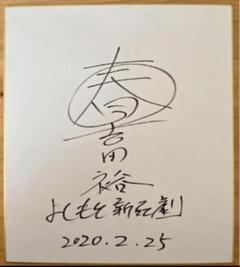 吉田
裕
よしもと新喜劇
2020.2.25